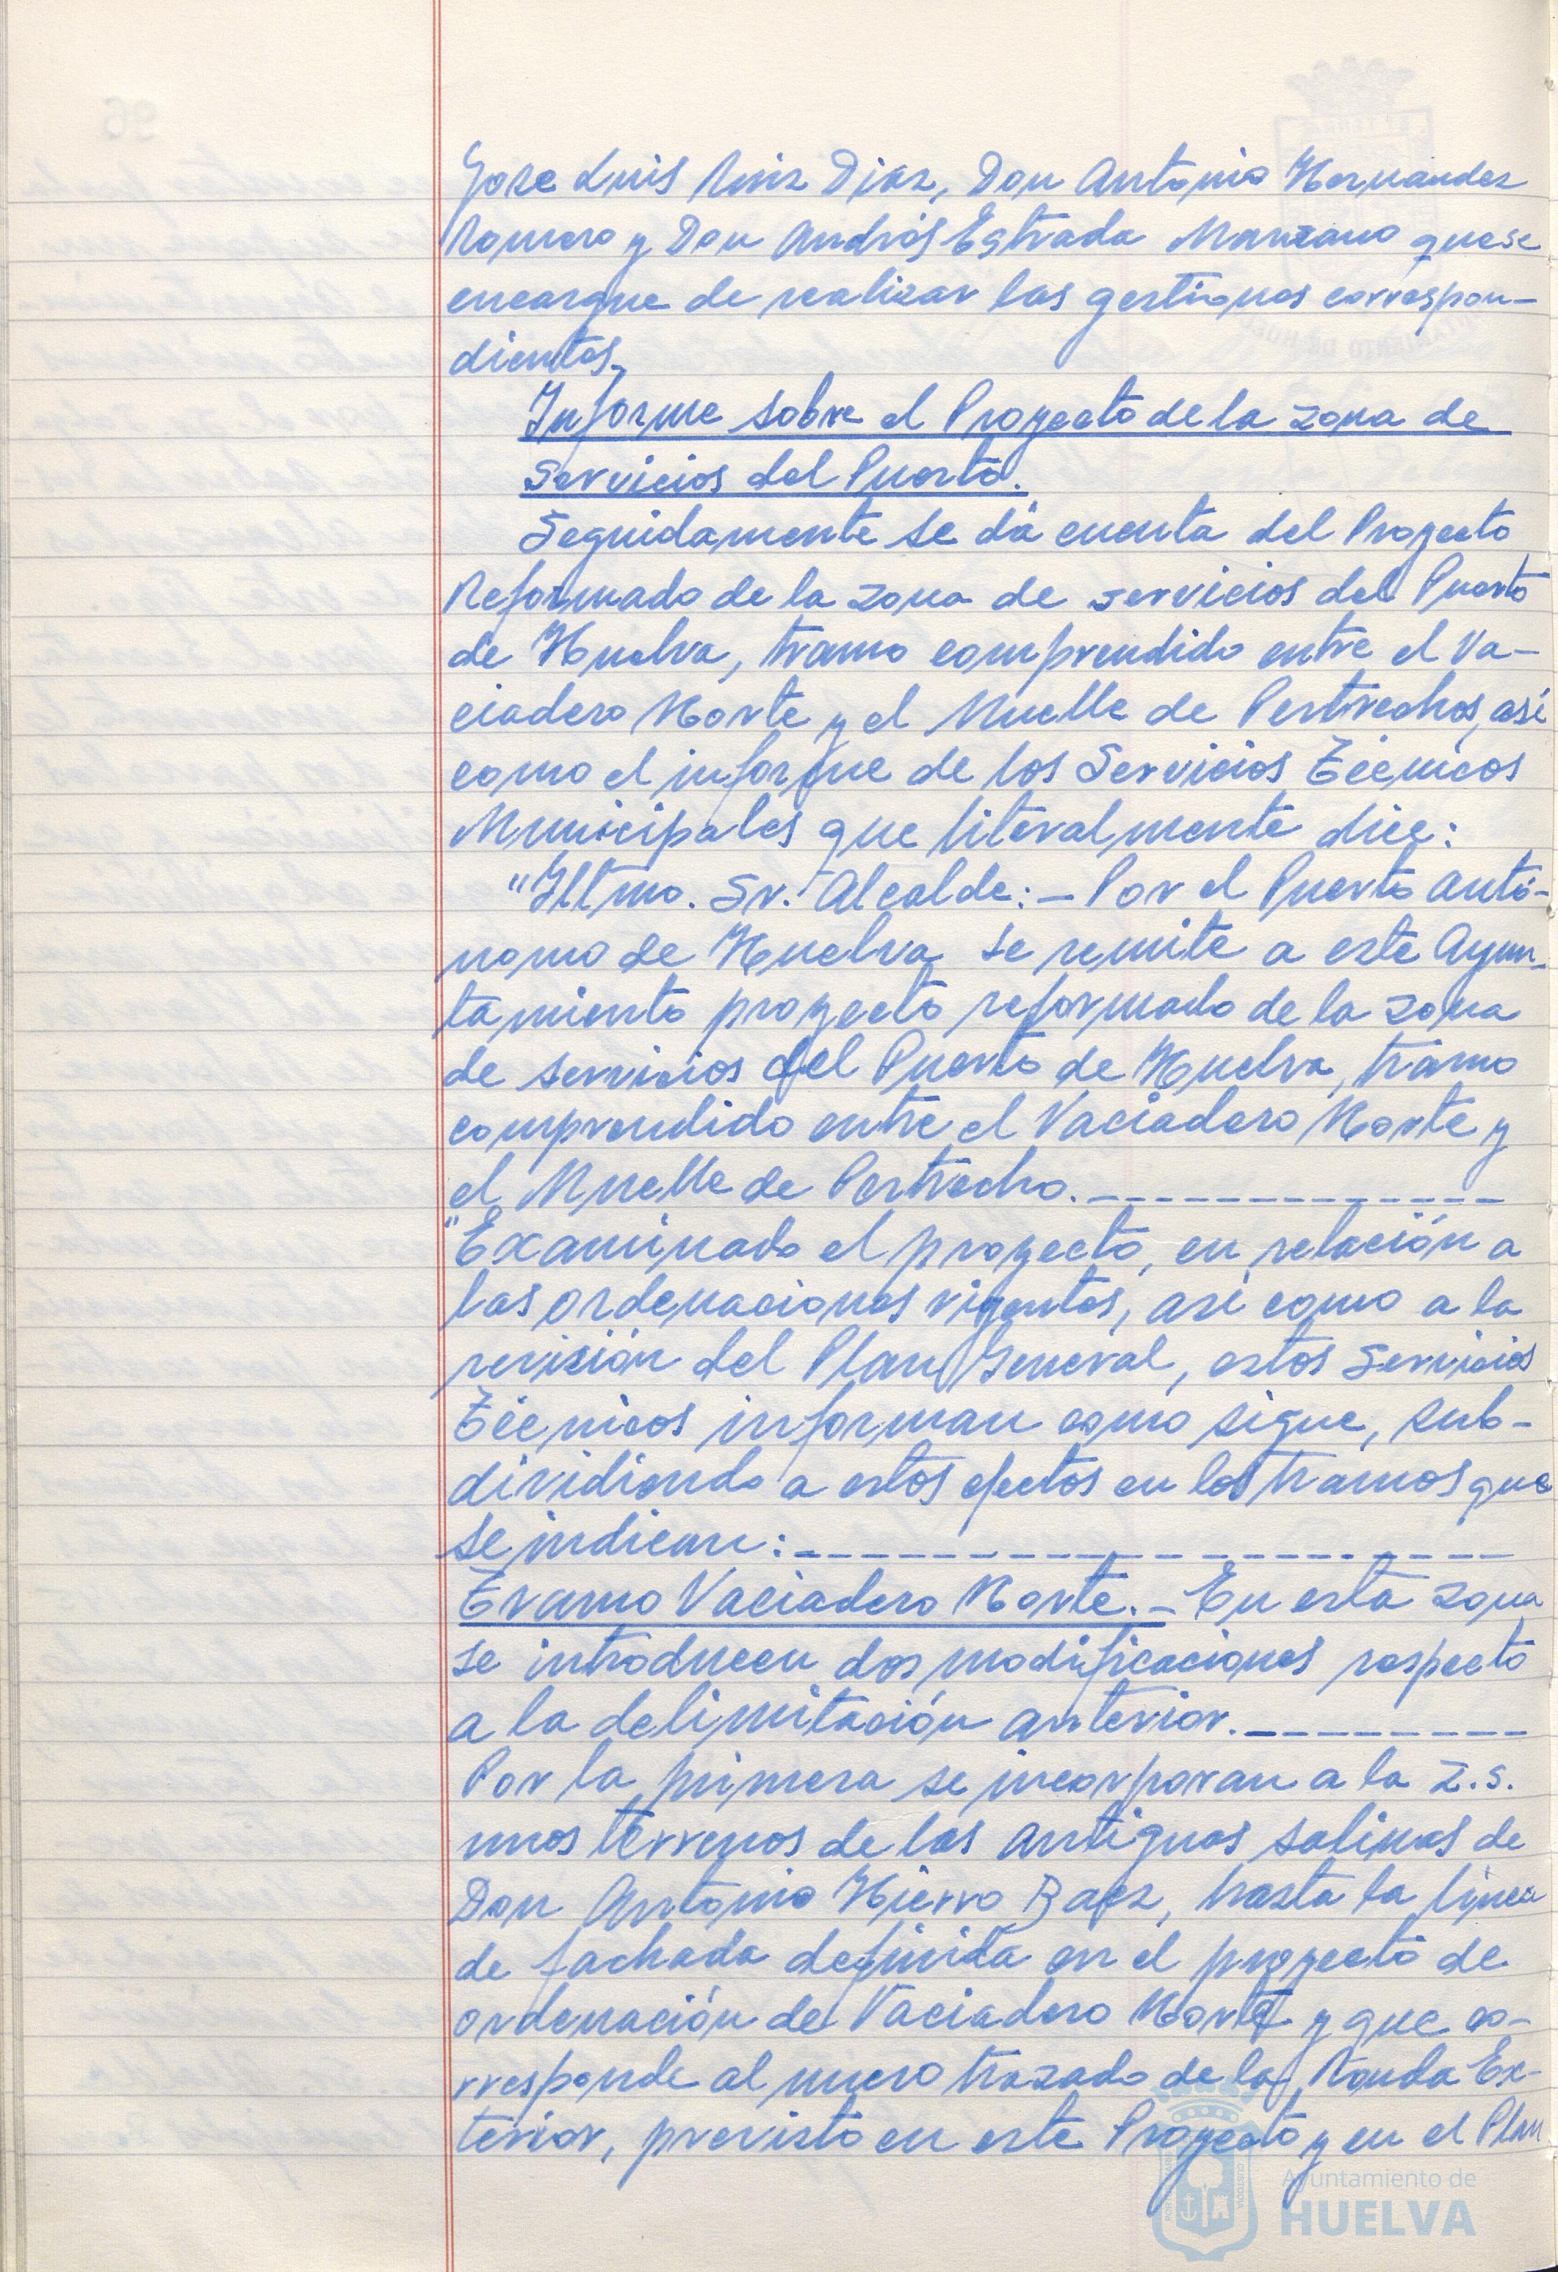 Jose Luis Ruiz Diaz, Don Antonio Hernandez
Romero y Don Andrés Estrada Manzano que se
encargue de realizar las gestiones correspon-
dientes.
Informe sobre el Proyecto de la zona de
Servicios del Puerto.
Seguidamente se dá cuenta del Proyecto
Reformado de la zona de servicios del Puerto
de Huelva, tramo comprendido entre el Va-
ciadero Norte y el Muelle de Pertrechos, así
como el informe de los Servicios Técnicos
Municipales que literalmente dice:
"Iltmo. Sr. Alcalde:- Por el Puerto Autó-
nomo de Huelva se remite a este Ayun-
tamiento proyecto reformado de la zona
de servicios del Puerto de Huelva, tramo
comprendido entre el Vaciadero Norte y
el Muelle de Pertrecho.-------------
"Examinado el proyecto, en relación a
las ordenaciones vigentes, así como a la
revisión del Plan General, estos Servicios
Técnicos informan como sigue, sub-
dividiendo a estos efectos en los tramos que
se indican:-----------------
Tramo Vaciadero Norte.- En esta zona
se introducen dos modificaciones respecto
a la delimitación anterior.---------
Por la primera se incorporan a la Z.S.
unos terrenos de las antiguas salinas de
Don Antonio Hierro Baez, hasta la línea
de fachada definida en el proyecto de
ordenación de Vaciadero Norte y que co-
rresponde al nuevo trazado de la Ronda Ex-
terior, previsto en este Proyecto y en el Plan
Ayuntamiento de
HUELVA